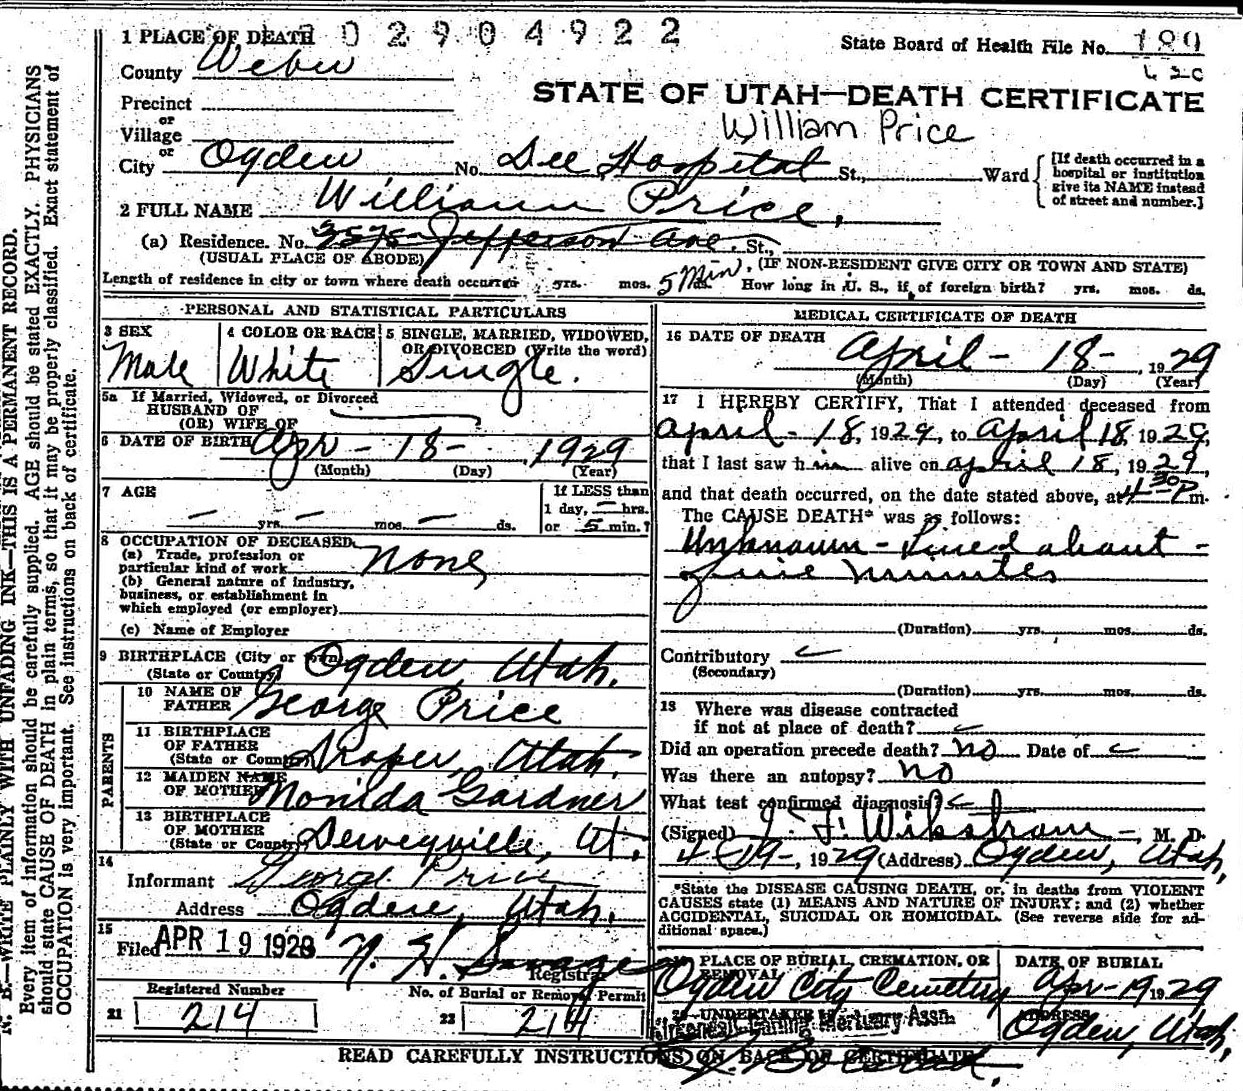 1 PLACE OF DEATH 02904922
State Board of Health File No. 189
County Weber
STATE OF UTAH—DEATH CERTIFICATE
Precinct
or
Village
William Price
or
City Ogden No. Dee Hospital St., Ward
[If death occurred in a
hospital or institution
give its NAME instead
of street and number.]
2 FULL NAME William Price,
(a) Residence. No. Jefferson Ave. St.,
(USUAL PLACE OF ABODE) (IF NON-RESIDENT GIVE CITY OR TOWN AND STATE)
Length of residence in city or town where death occurred yrs. mos. 5 Min. ds. How long in U. S., if of foreign birth? yrs. mos. ds.
PERSONAL AND STATISTICAL PARTICULARS
3 SEX
Male
4 COLOR OR RACE
White
5 SINGLE, MARRIED, WIDOWED,
OR DIVORCED (Write the word)
Single.
5a If Married, Widowed, or Divorced
HUSBAND OF
(OR) WIFE OF
6 DATE OF BIRTH Apr - 18 - , 1929
(Month) (Day) (Year)
7 AGE
— yrs. — mos. — ds.
If LESS than
1 day, — hrs.
or 5 min.?
8 OCCUPATION OF DECEASED
(a) Trade, profession or
particular kind of work None
(b) General nature of industry,
business, or establishment in
which employed (or employer)
(c) Name of Employer
9 BIRTHPLACE (City or town) Ogden, Utah.
(State or Country)
PARENTS
10 NAME OF
FATHER George Price
11 BIRTHPLACE
OF FATHER
(State or Country) Draper, Utah.
12 MAIDEN NAME
OF MOTHER Monida Gardner
13 BIRTHPLACE
OF MOTHER
(State or Country) Deweyville, Ut.
14
Informant George Price
Address Ogden, Utah.
15
Filed APR 19 1929 N. H. Savage
Registrar
Registered Number
21 214
No. of Burial or Removal Permit
22 214
MEDICAL CERTIFICATE OF DEATH
16 DATE OF DEATH April - 18 - , 1929
(Month) (Day) (Year)
17 I HEREBY CERTIFY, That I attended deceased from
April - 18, 1929, to April 18, 1929,
that I last saw him alive on April 18, 1929,
and that death occurred, on the date stated above, at 4 30 P m.
The CAUSE DEATH* was as follows:
Unknown - Lived about -
five minutes
(Duration) yrs. mos. ds.
Contributory
(Secondary)
(Duration) yrs. mos. ds.
18 Where was disease contracted
if not at place of death?
Did an operation precede death? no Date of
Was there an autopsy? no
What test confirmed diagnosis?
(Signed) Wikstrom -, M. D.
4-19-, 1929 (Address) Ogden, Utah,
*State the DISEASE CAUSING DEATH, or, in deaths from VIOLENT
CAUSES state (1) MEANS AND NATURE OF INJURY; and (2) whether
ACCIDENTAL, SUICIDAL OR HOMICIDAL. (See reverse side for ad-
ditional space.)
PLACE OF BURIAL, CREMATION, OR
REMOVAL
Ogden City Cemetery
DATE OF BURIAL
Apr - 19 1929
20 UNDERTAKER
Mortuary Assn
ADDRESS
Ogden, Utah,
READ CAREFULLY INSTRUCTIONS ON BACK OF CERTIFICATE
N. B.—WRITE PLAINLY WITH UNFADING INK—THIS IS A PERMANENT RECORD.
Every item of information should be carefully supplied. AGE should be stated EXACTLY. PHYSICIANS
should state CAUSE OF DEATH in plain terms, so that it may be properly classified. Exact statement of
OCCUPATION is very important. See instructions on back of certificate.